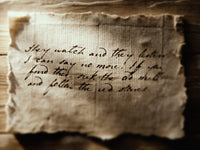 They watch and they listen
I can say no more. If you
find this, seek the old
and follow the red